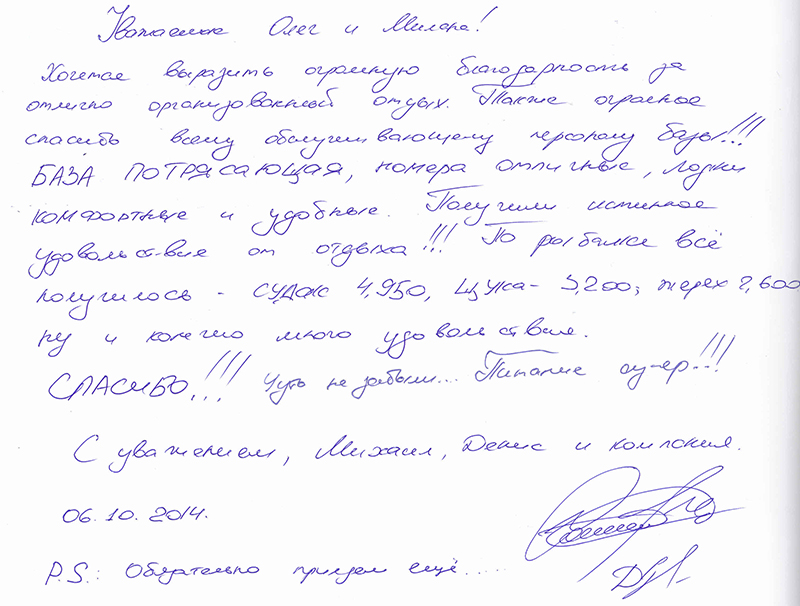 Уважаемые Олег и Милана!
Хочется выразить огромную благодарность за
отлично организованный отдых. Также огромное
спасибо всему обслуживающему персоналу базы!!!
БАЗА ПОТРЯСАЮЩАЯ, номера отличные, лодки
комфортные и удобные. Получили истинное
удовольствие от отдыха!!! По рыбалке всё
получилось - СУДАК 4,950, ЩУКА - 3,200; жерех 2,600
ну и конечно много удовольствия.
СПАСИБО!!! Чуть не забыли... Питание супер!!!
С уважением, Михаил, Денис и компания.
06.10.2014.
P.S.: Обязательно приедем ещё.....